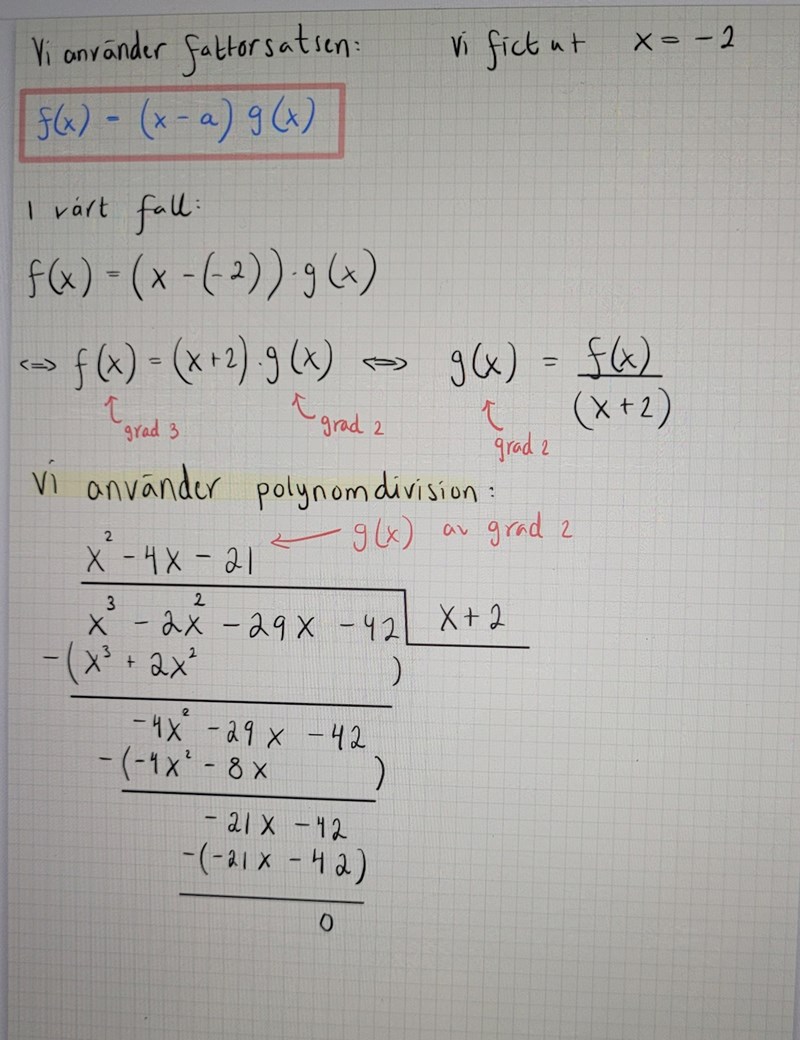 Vi använder faktorsatsen: Vi fick ut x = -2
f(x) = (x - a) g(x)
I vårt fall:
f(x) = (x - (-2)) · g(x)
⇔ f(x) = (x+2) · g(x) ⇔ g(x) = f(x) / (x+2)
↑ grad 3 ↑ grad 2 ↑ grad 2
Vi använder polynomdivision:
x² - 4x - 21 ← g(x) av grad 2
x³ - 2x² - 29x - 42 | x + 2
-(x³ + 2x² )
-4x² - 29x - 42
-(-4x² - 8x )
-21x - 42
-(-21x - 42)
0